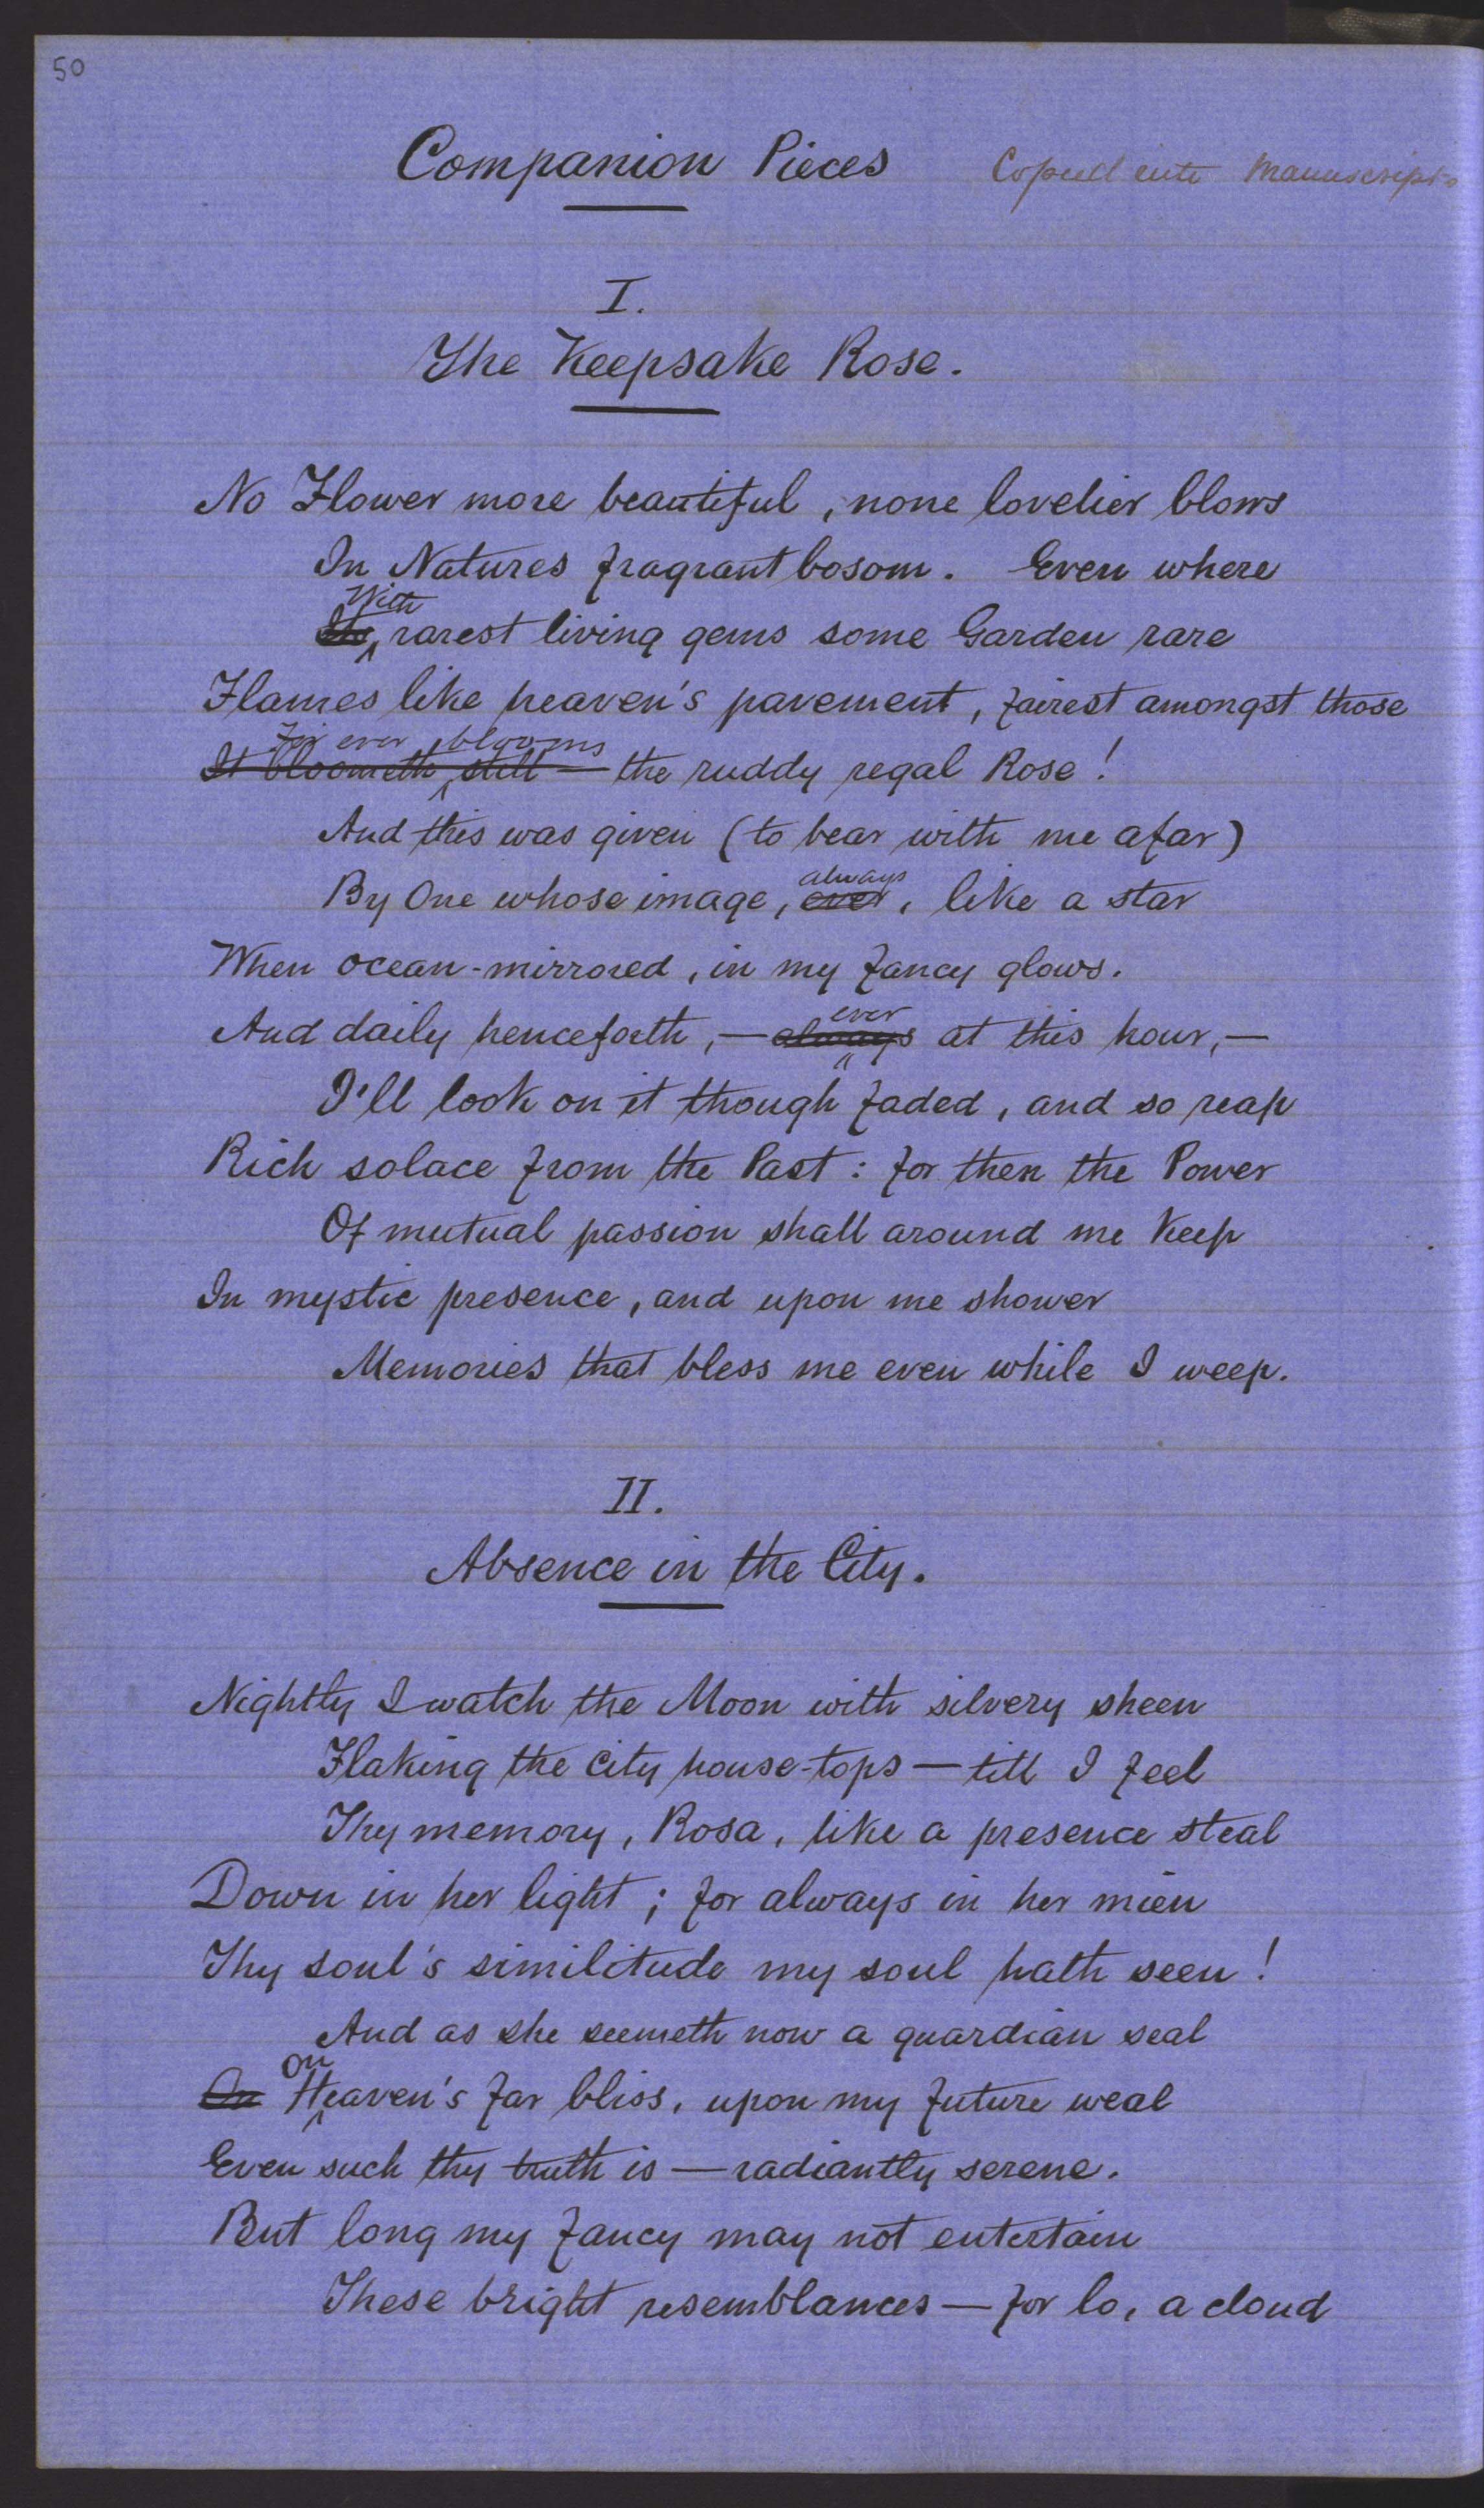 50
Companion Pieces
Copied into Manuscripts
I.
The Keepsake Rose.
No Flower more beautiful, none lovelier blows
In Natures fragrant bosom. Even where
With
rarest living gems some Garden rare
Flames like heaven's pavement, fairest amongst those
For ever blooms
It bloometh still — the ruddy regal Rose!
And this was given (to bear with me afar)
always
By One whose image, ever, like a star
When ocean-mirrored, in my fancy glows.
ever
And daily henceforth, — always at this hour, —
I'll look on it though faded, and so reap
Rich solace from the Past: for then the Power
Of mutual passion shall around me keep
In mystic presence, and upon me shower
Memories that bless me even while I weep.
II.
Absence in the City.
Nightly I watch the Moon with silvery sheen
Flaking the city house-tops — till I feel
Thy memory, Rosa, like a presence steal
Down in her light; for always in her mien
Thy soul's similitude my soul hath seen!
And as she seemeth now a guardian seal
On
On Heaven's far bliss, upon my future weal
Even such thy truth is — radiantly serene.
But long my fancy may not entertain
These bright resemblances — for lo, a cloud